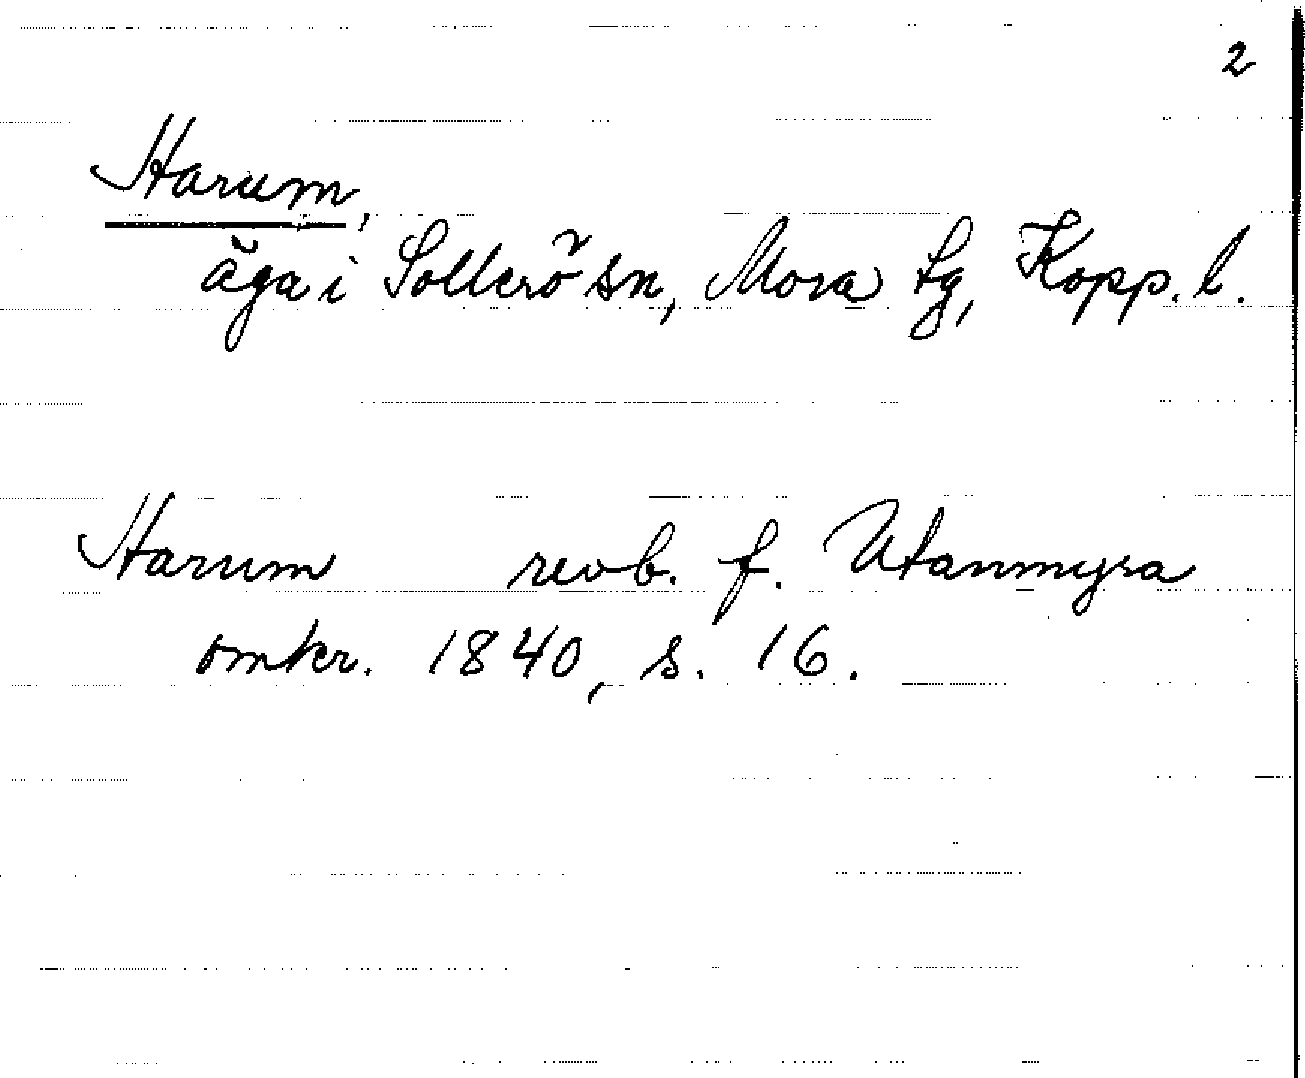 2
Harum,
äga i Sollerö sn, Mora tg, Kopp. l.
Harum revb. f. Utanmyra
omkr. 1840, s. 16.